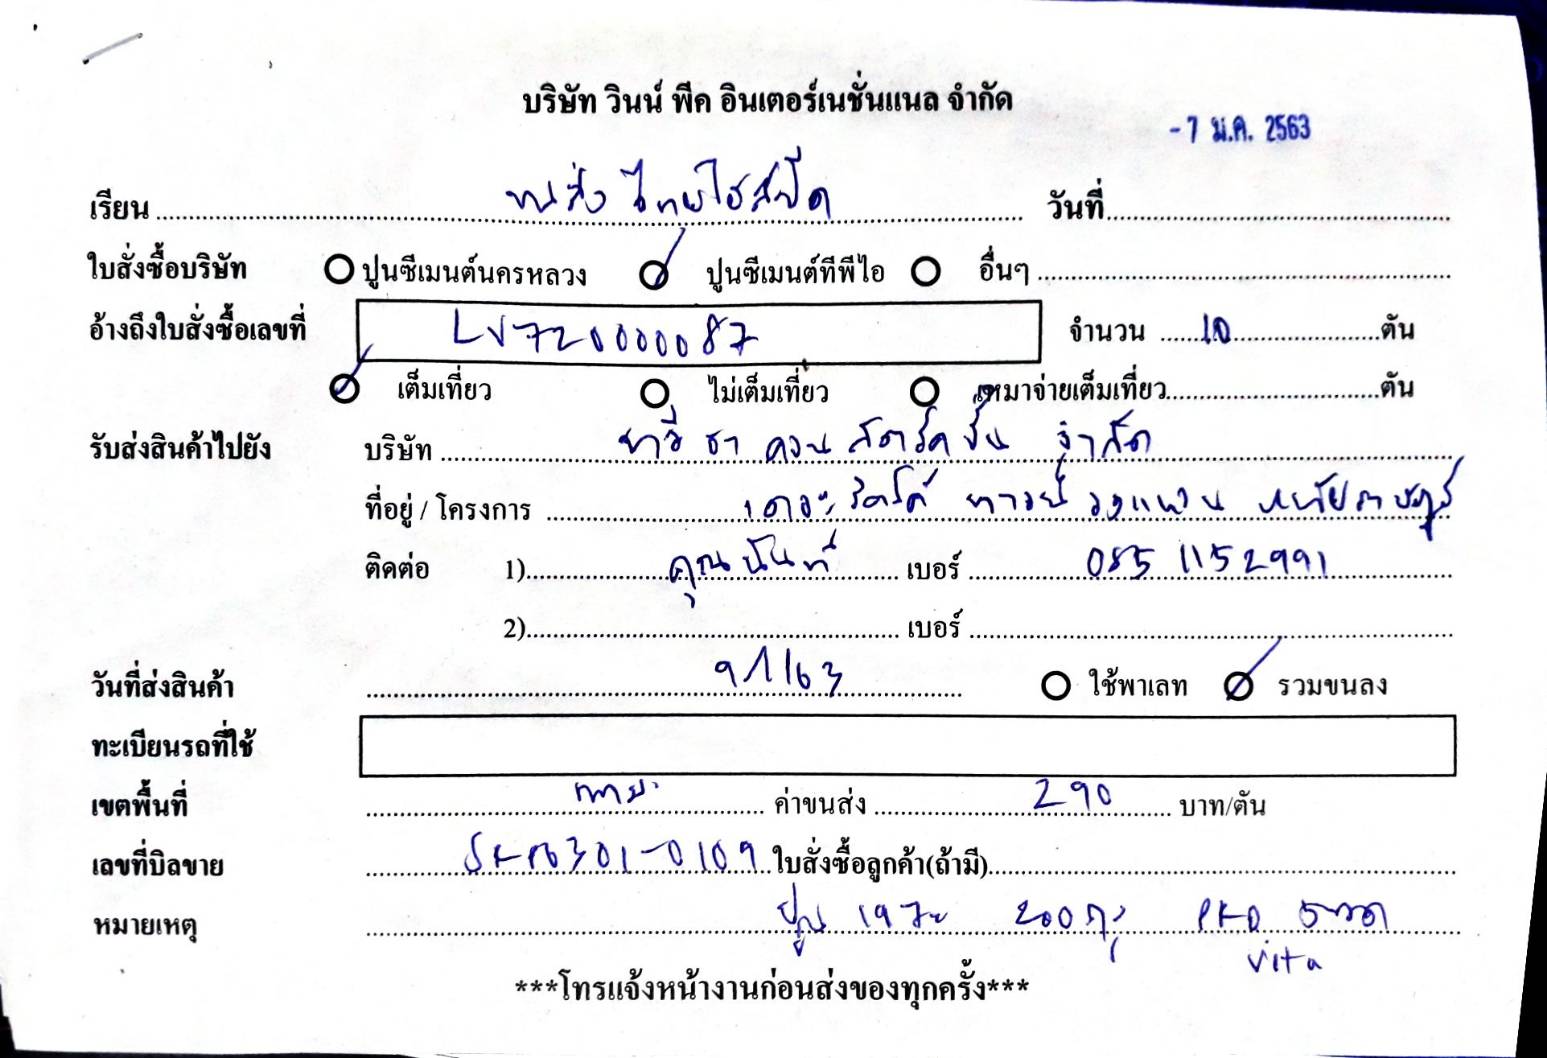 บริษัท วินน์ พีค อินเตอร์เนชั่นแนล จำกัด
- 7 ม.ค. 2563
เรียน ขนส่ง ไทยไฮสปีด วันที่
ใบสั่งซื้อบริษัท ปูนซีเมนต์นครหลวง ปูนซีเมนต์ทีพีไอ อื่นๆ
อ้างถึงใบสั่งซื้อเลขที่ LV720000087 จำนวน 10 ตัน
เต็มเที่ยว ไม่เต็มเที่ยว เหมาจ่ายเต็มเที่ยว ตัน
รับส่งสินค้าไปยัง บริษัท คอนสตรัคชั่น จำกัด
ที่อยู่ / โครงการ เดอะ
ติดต่อ 1) คุณนันท์ เบอร์ 085 1152991
2) เบอร์
วันที่ส่งสินค้า 9/1/63 ใช้พาเลท รวมขนลง
ทะเบียนรถที่ใช้
เขตพื้นที่ ค่าขนส่ง 290 บาท/ตัน
เลขที่บิลขาย 6301-0109 ใบสั่งซื้อลูกค้า(ถ้ามี)
หมายเหตุ ปูน 197 200
***โทรแจ้งหน้างานก่อนส่งของทุกครั้ง***